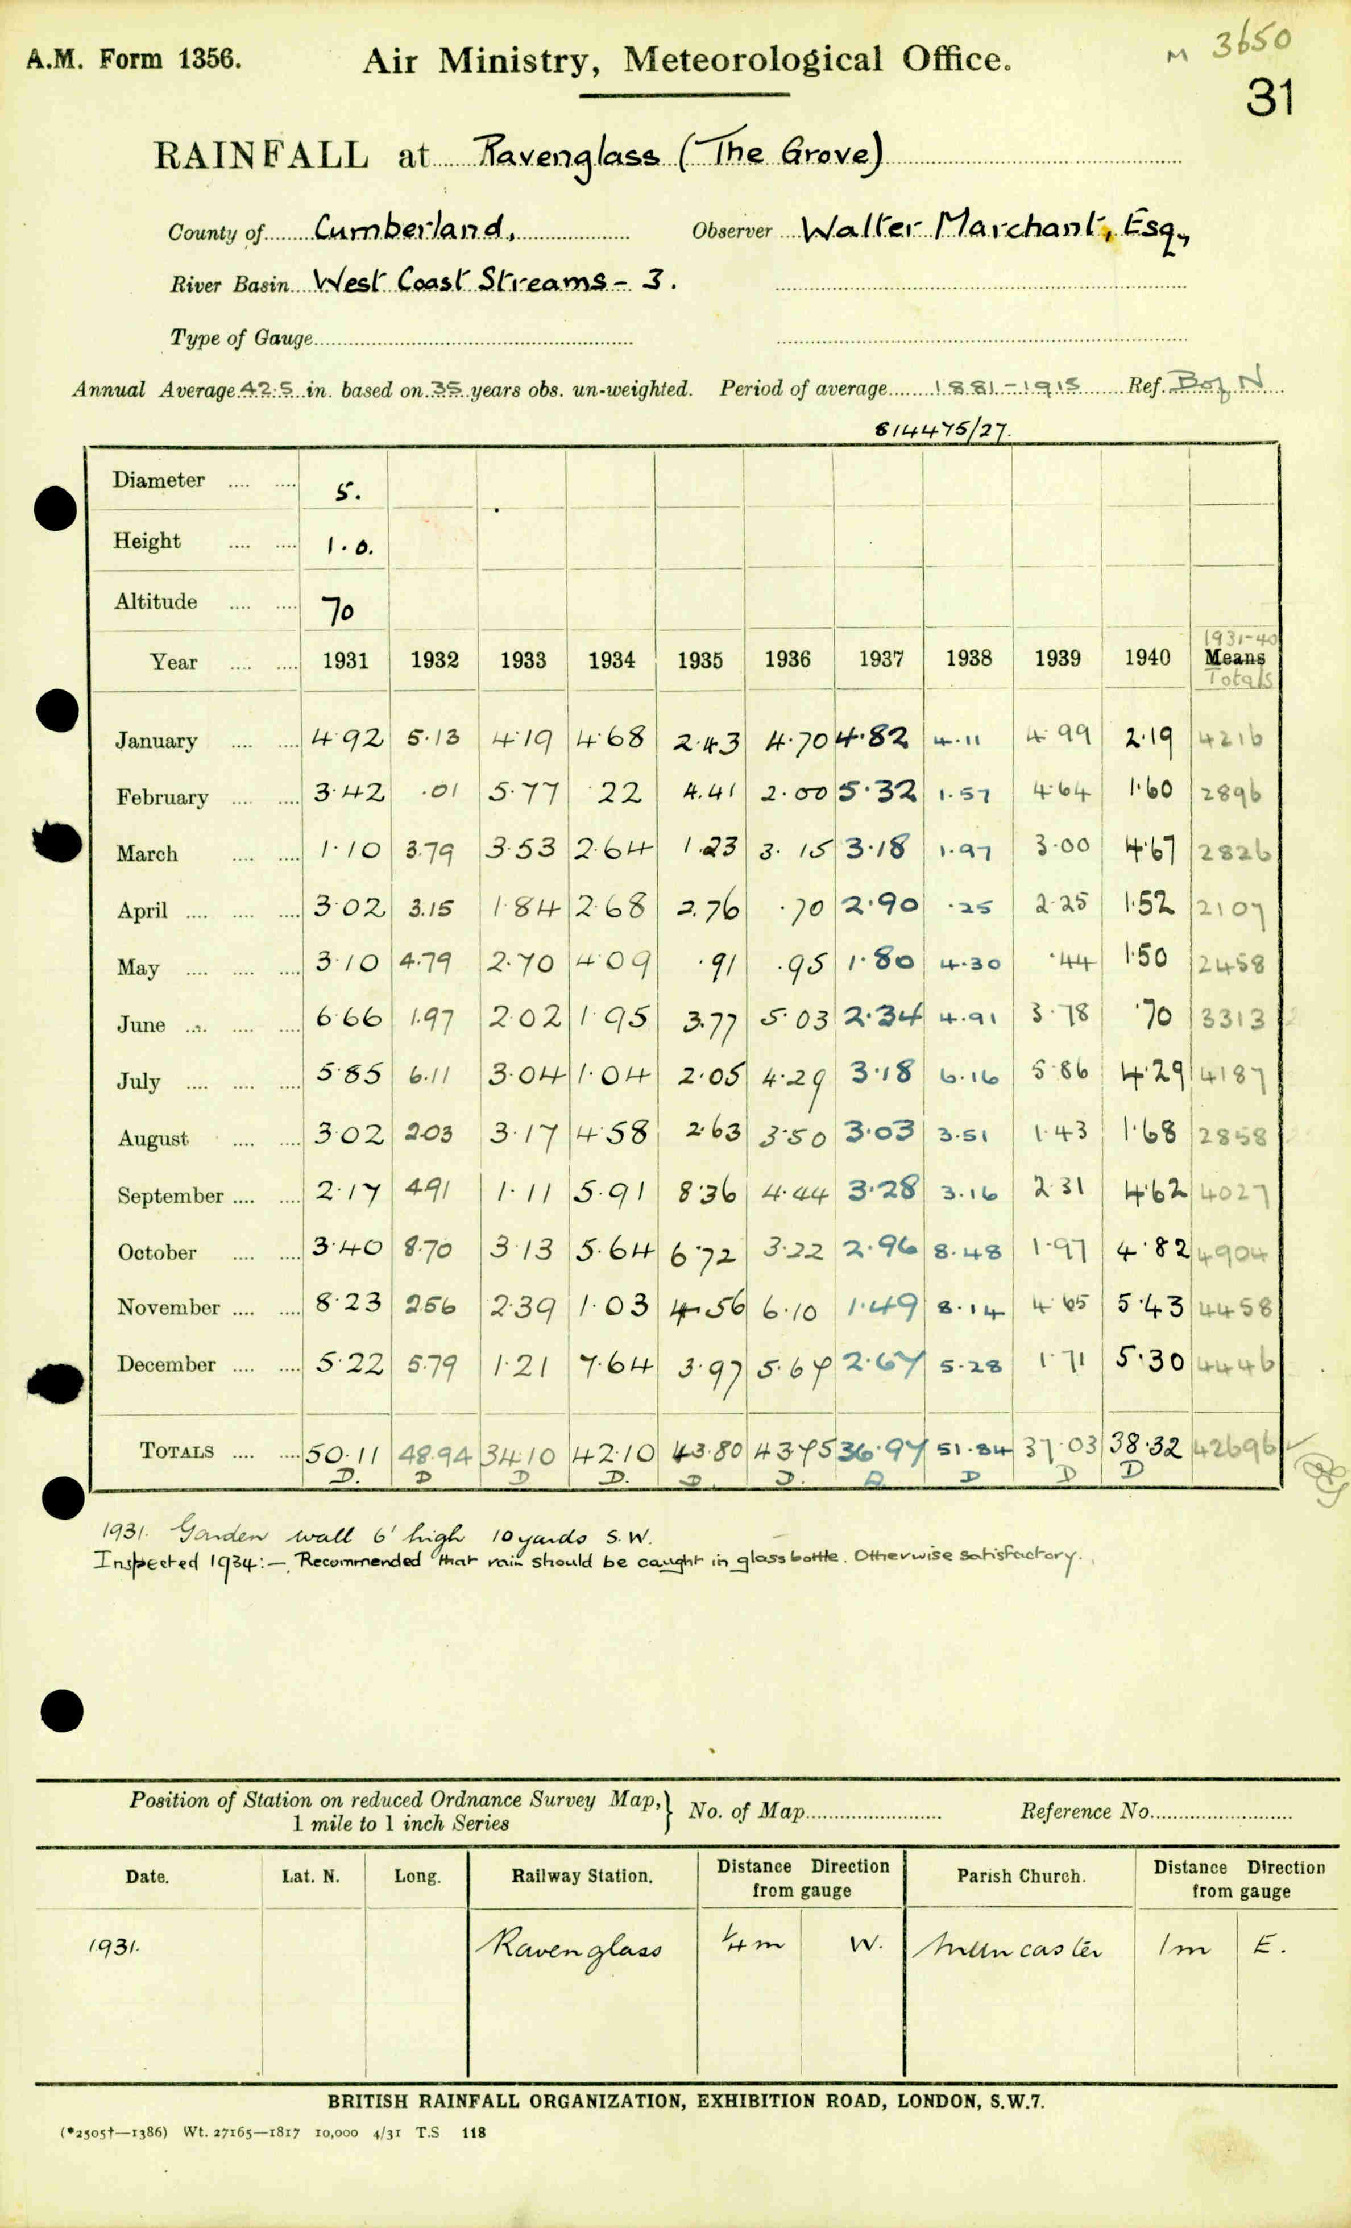 M 3650
A.M. Form 1356. Air Ministry, Meteorological Office.
31
RAINFALL at Ravenglass (The Grove)
County of Cumberland, Observer Walter Marchant, Esq.,
River Basin West Coast Streams - 3.
Type of Gauge
Annual Average 42.5 in. based on 35 years obs. un-weighted. Period of average 1881-1915 Ref. B of N
614475/27.
Diameter 5.
Height 1.0.
Altitude 70
Year 1931 1932 1933 1934 1935 1936 1937 1938 1939 1940 1931-40 Means Totals
January 4.92 5.13 4.19 4.68 2.43 4.70 4.82 4.11 4.99 2.19 4216
February 3.42 .01 5.77 .22 4.41 2.00 5.32 1.57 4.64 1.60 2896
March 1.10 3.79 3.53 2.64 1.23 3.15 3.18 1.97 3.00 4.67 2826
April 3.02 3.15 1.84 2.68 2.76 .70 2.90 .25 2.25 1.52 2107
May 3.10 4.79 2.70 4.09 .91 .95 1.80 4.30 .44 1.50 2458
June 6.66 1.97 2.02 1.95 3.77 5.03 2.34 4.91 3.78 .70 3313
July 5.85 6.11 3.04 1.04 2.05 4.29 3.18 6.16 5.86 4.29 4187
August 3.02 2.03 3.17 4.58 2.63 3.50 3.03 3.51 1.43 1.68 2858
September 2.17 4.91 1.11 5.91 8.36 4.44 3.28 3.16 2.31 4.62 4027
October 3.40 8.70 3.13 5.64 6.72 3.22 2.96 8.48 1.97 4.82 4904
November 8.23 2.56 2.39 1.03 4.56 6.10 1.49 8.14 4.65 5.43 4458
December 5.22 5.79 1.21 7.64 3.97 5.67 2.67 5.28 1.71 5.30 4446
TOTALS 50.11 48.94 34.10 42.10 43.80 43.75 36.97 51.84 37.03 38.32 42696
D. D D D. D. D. D. D D D
1931. Garden wall 6' high 10 yards S.W.
Inspected 1934:— Recommended that rain should be caught in glass bottle. Otherwise satisfactory.
Position of Station on reduced Ordnance Survey Map, 1 mile to 1 inch Series } No. of Map Reference No.
Date. Lat. N. Long. Railway Station. Distance Direction from gauge Parish Church. Distance Direction from gauge
1931. Ravenglass 1/4 m W. Muncaster 1 m E.
BRITISH RAINFALL ORGANIZATION, EXHIBITION ROAD, LONDON, S.W.7.
(*2505†—1386) Wt. 27165—1817 10,000 4/31 T.S 118